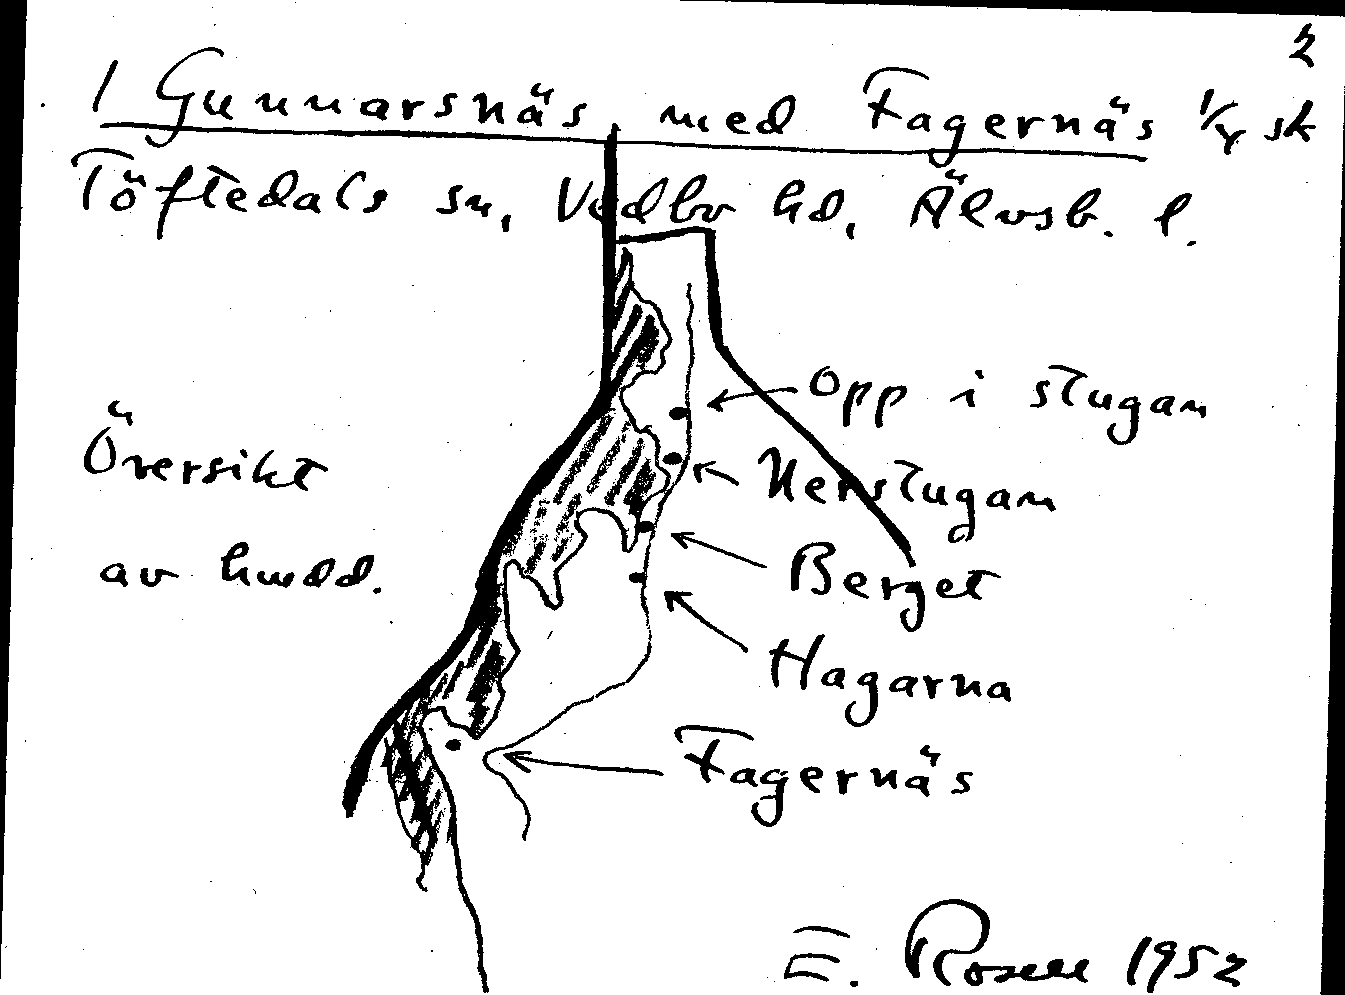 2
1 Gunnarsnäs med Fagernäs 1/4 sk
Töftedals sn, Vedbo hd, Älvsb. l.
Opp i stugan
Översikt
Nerstugan
av huvdd.
Berget
Hagarna
Fagernäs
E. Rosell 1952